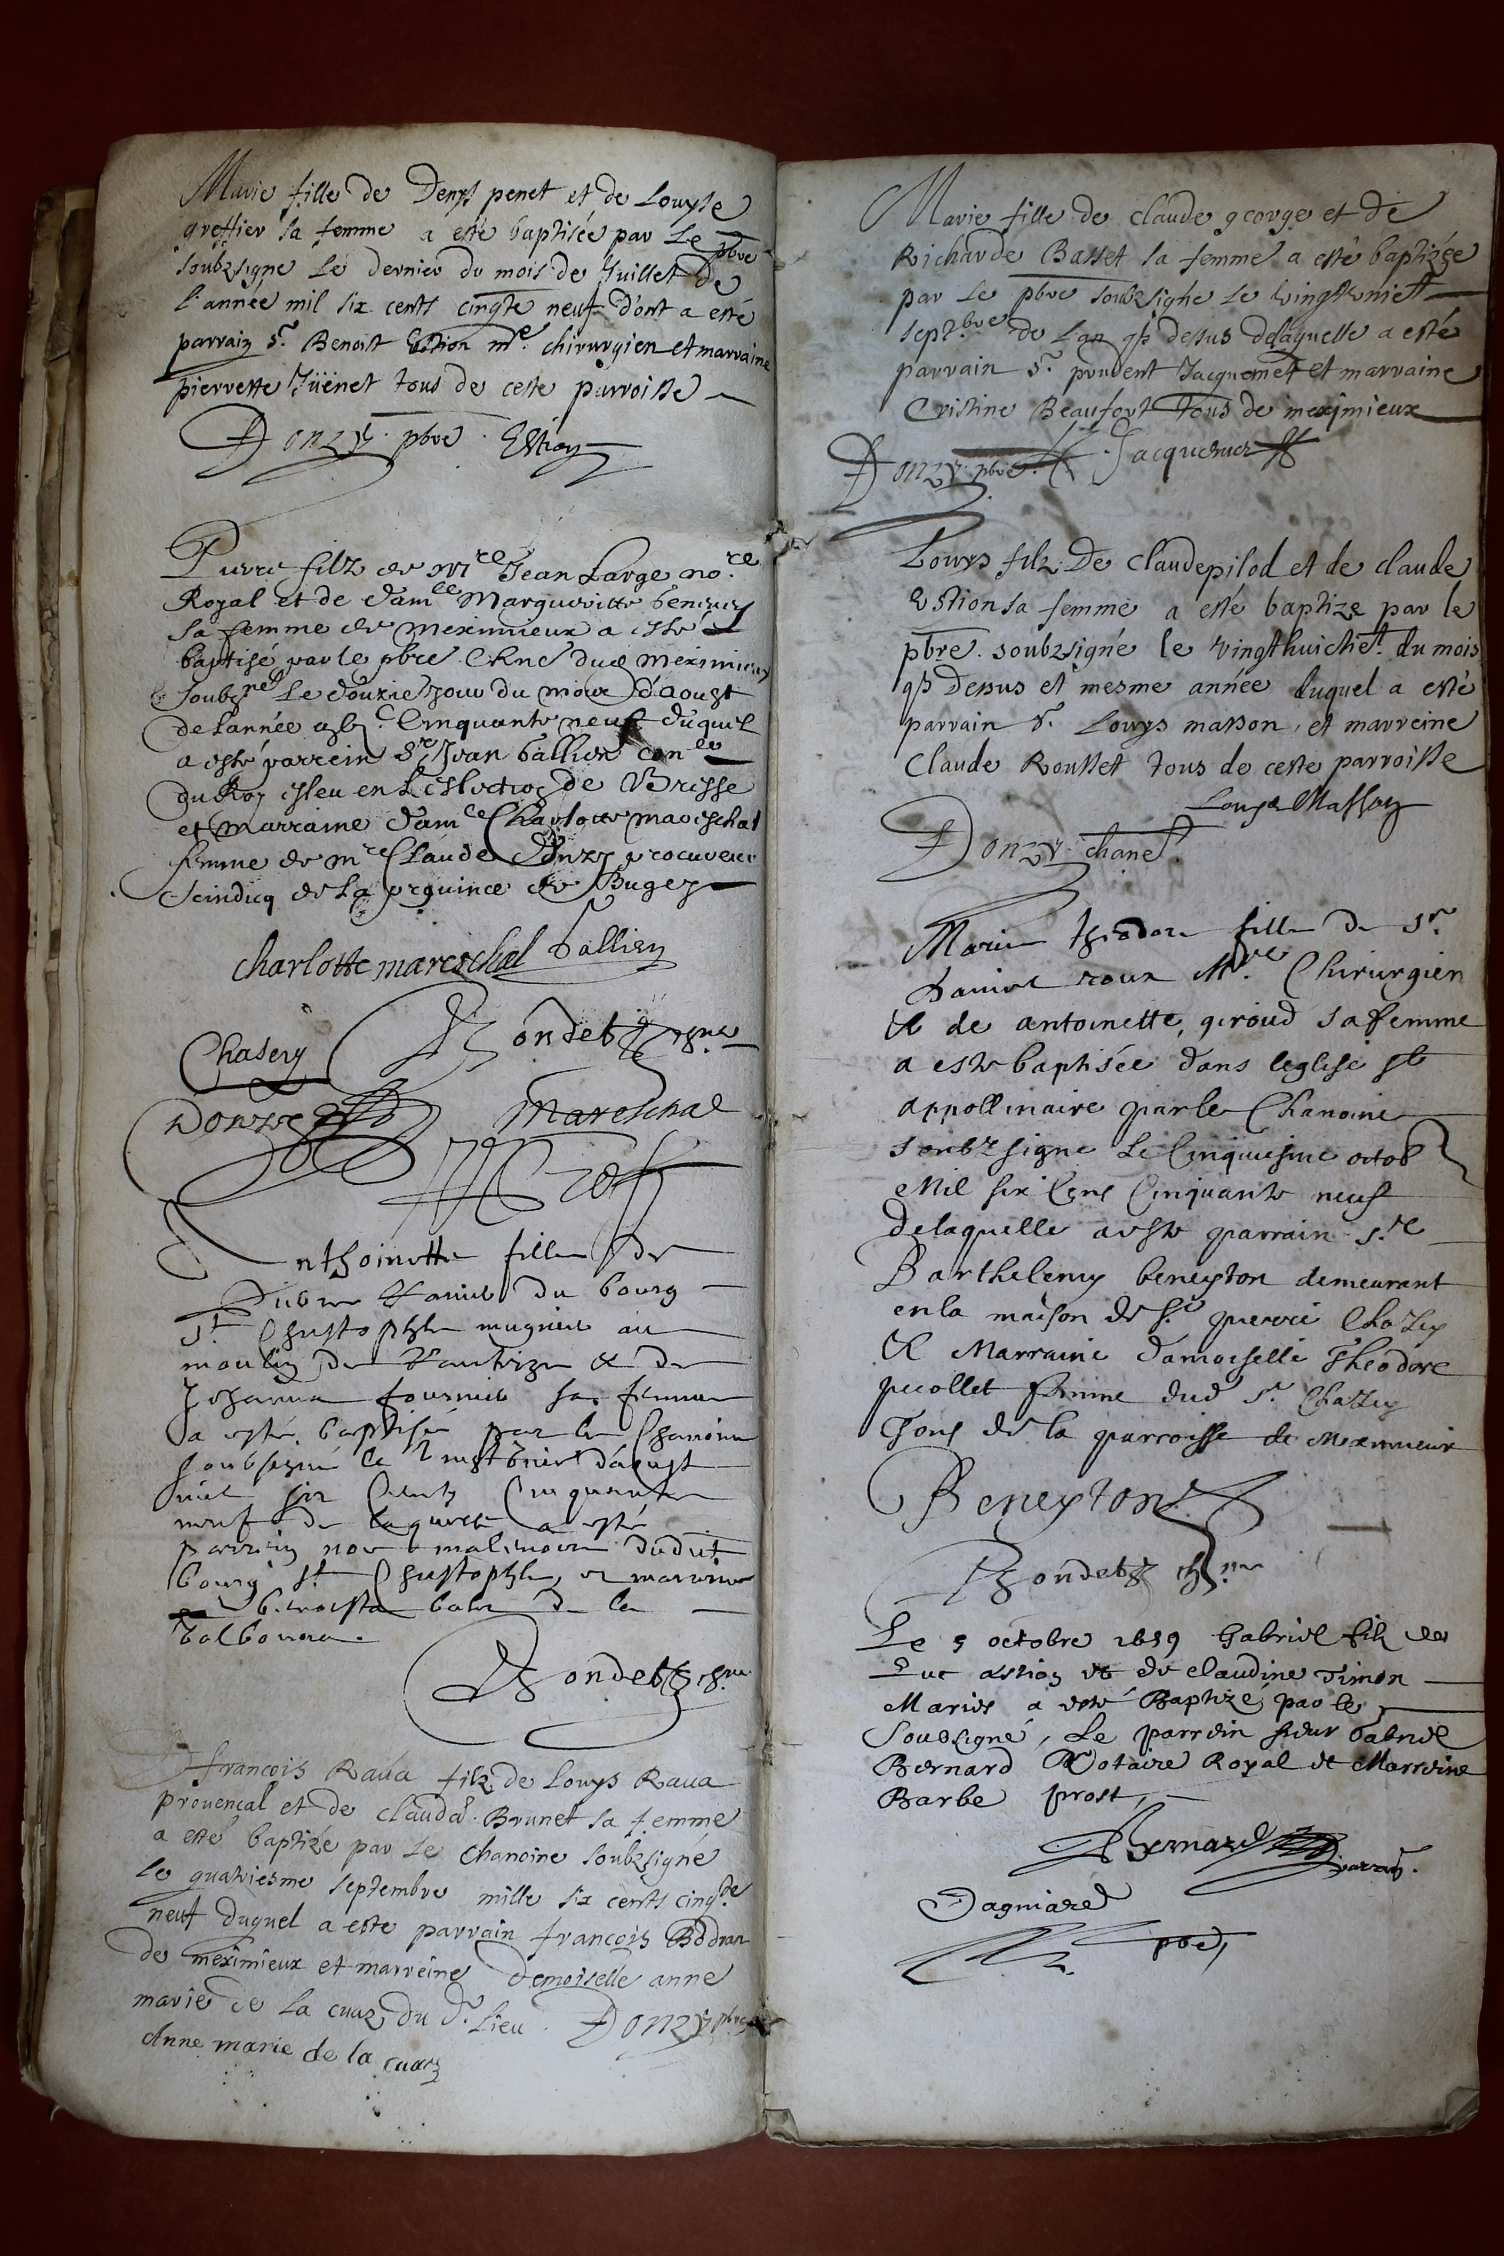 Marie fille de Denys penet et de Louyse
greffier sa femme a esté baptisée par Le pbre
soubzsigne Le dernier du mois de Juillet de
l'année mil six cents cinqte neuf d'ont a esté
parrain sr. Benoist Estion mre. chirurgien et marraine
pierrette Jüenet tous de ceste parroisse
Donzy. pbre. Estion
Pierre filz de Mre Jean Large nore
Royal et de damlle Margueritte
sa femme de meximieux a esté
baptisé par le pbre Chne dud meximieux
soubsné Le jour du mois d'aoust
de l'année Cinquante neuf duquel
a esté parrein Sr Jean ballier
du Roy esleu en L'eslection de Bresse
et Marraine damlle Charlotte mareschal
femme de mre Claude Donzy procureur
scindicq de la province de Bugey
charlotte mareschal
Chasey Rondetz chne
Donzy Mareschal
Anthoinette fille de
du bourg
st Christophle mugnier au
moulin de & de
Jehanna fournier sa femme
a esté baptisé par le Chanoine
soubsigné le d'aoust
mil six Cents Cinquante
neuf de laquelle a esté
parrein dudit
bourg st Christophle, et marrine
de la
valbonne.
Rondetz chne
francois Raua filz de Louys Raua
prouencal et de clauda. Brunet sa femme
a esté baptizé par Le Chanoine soubzsigné
le quatriesme septembre mille six cents cinqte
neuf duquel a este parrain francois
de meximieux et marreine demoiselle anne
marie de La cuaz du dt. Lieu. Donzy pbre
Anne marie de la cuaz
Marie fille de claude george et de
Richarde Basset sa femme a esté baptizée
par Le pbre soubzsigne Le
septbre de L'an qs dessus delaquelle a esté
parrain sr. prudent Jacquemet et marraine
Cristine Beaufort tous de meximieux
Donzy pbre. Jacquemet
Louys filz De Claude pilod et de claude
Estion sa femme a esté baptize par le
pbre. soubzsigné le vingthuict du mois
qs Dessus et mesme année duquel a esté
parrain sr. Louys masson, et marreine
Claude Rousset tous de ceste parroisse
Louys Masson
Donzy chane
Marie theodore fille de sr.
Daniel roux Mre. Chirurgien
& de antoinette, giroud sa femme
a este baptisée dans leglise st
appollinaire par le Chanoine
soubzsigne Le Cinquiesme octob
Mil six Cens Cinquante neuf
delaquelle a este parrain sr
Barthelemy beneyton demeurant
en la maison de sr pierre Chazey
& Marraine damoiselle theodore
picollet femme dud sr Chazey
Tous de la parroisse de Meximieux
Beneyton
Rondetz chne
Le 5 octobre 1659 Gabriel filz de
Luc astion et de Claudine Timon
Maries a esté Baptizé par le
Soubsigné, Le parrein sieur Gabriel
Bernard Notaire Royal et Marreine
Barbe prost,
Bernard parrain.
Dagniard
pbre,